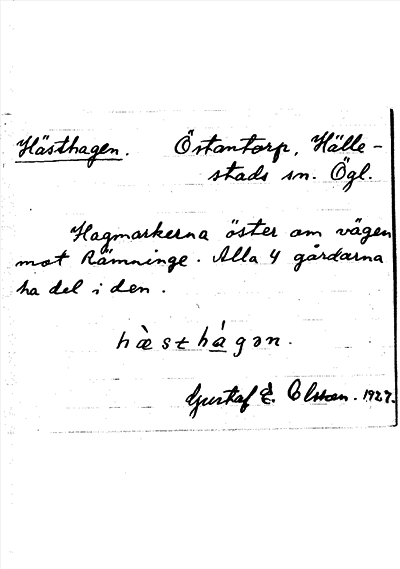 Hästhagen. Östantorp, Hälle-
stads sn. Ögl.
Hagmarkerna öster om vägen
mot Rämninge. Alla 4 gårdarna
ha del i den.
hæ̀sthágən.
Gustaf E. Olsson. 1927.